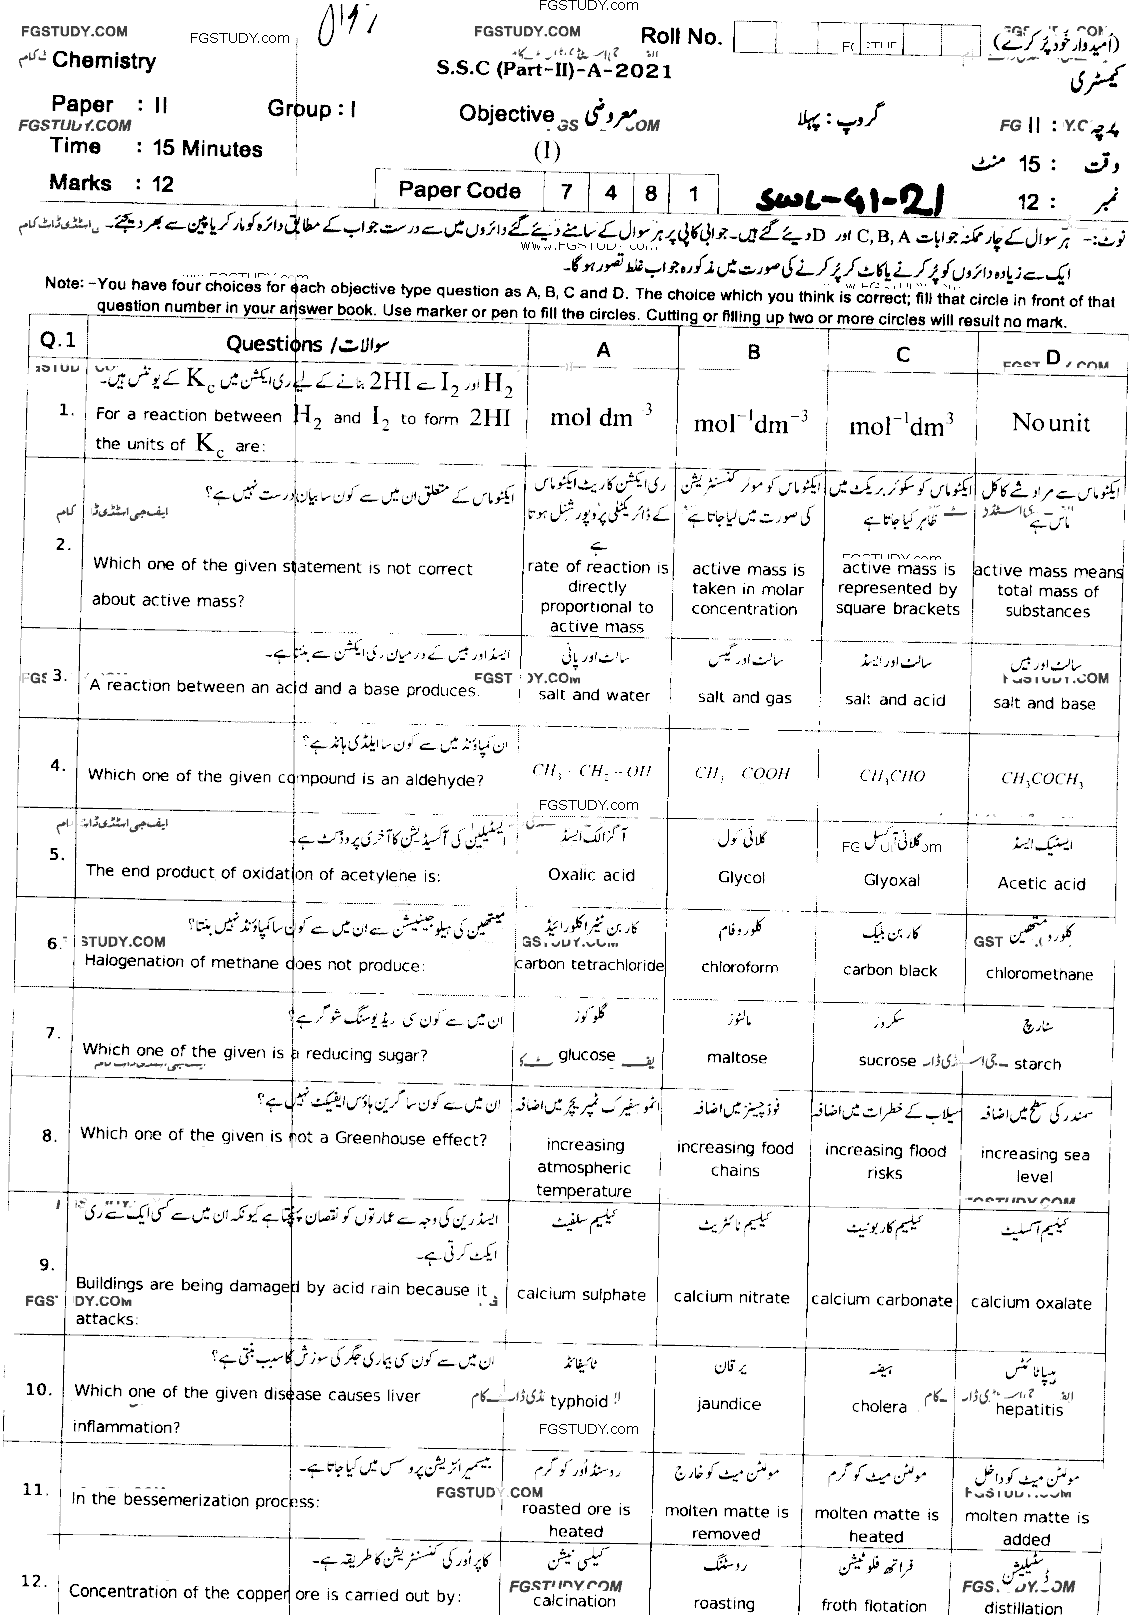 FGSTUDY.com
FGSTUDY.COM FGSTUDY.com FGSTUDY.COM Roll No. (امیدوار خود پُر کرے)
Chemistry S.S.C (Part-II)-A-2021 کیمسٹری
Paper : II Group : I Objective معروضی گروپ : پہلا پرچہ : II
FGSTUDY.COM
Time : 15 Minutes (I) وقت : 15 منٹ
Marks : 12 Paper Code 7 4 8 1 SWL-G1-21 نمبر : 12
نوٹ:- ہر سوال کے چار ممکنہ جوابات A ,B ,C اور D دیئے گئے ہیں۔ جوابی کاپی پر ہر سوال کے سامنے دیئے گئے دائروں میں سے درست جواب کے مطابق دائرہ کو مارکر یا پین سے بھر دیجئے۔
www.FGSTUDY.com
ایک سے زیادہ دائروں کو پُر کرنے یا کاٹ کر پُر کرنے کی صورت میں مذکورہ جواب غلط تصور ہوگا۔
Note: -You have four choices for each objective type question as A, B, C and D. The choice which you think is correct; fill that circle in front of that
question number in your answer book. Use marker or pen to fill the circles. Cutting or filling up two or more circles will result no mark.
Q.1 Questions / سوالات A B C D
H₂ اور I₂ سے 2HI بنانے کے لیے ری ایکشن میں K꜀ کے یونٹس ہیں۔
1. For a reaction between H₂ and I₂ to form 2HI the units of K꜀ are:
mol dm⁻³
mol⁻¹dm⁻³
mol⁻¹dm³
No unit
ایکٹو ماس کے متعلق ان میں سے کون سا بیان درست نہیں ہے؟
ری ایکشن کا ریٹ ایکٹو ماس کے ڈائریکٹلی پروپورشنل ہوتا ہے
ایکٹو ماس کو مولر کنسنٹریشن کی صورت میں لیا جاتا ہے
ایکٹو ماس کو سکوئر بریکٹ میں ظاہر کیا جاتا ہے
ایکٹو ماس سے مراد شے کا کل ماس ہے
2. Which one of the given statement is not correct about active mass?
rate of reaction is directly proportional to active mass
active mass is taken in molar concentration
active mass is represented by square brackets
active mass means total mass of substances
ایسڈ اور بیس کے درمیان ری ایکشن سے بنتا ہے۔
سالٹ اور پانی
سالٹ اور گیس
سالٹ اور ایسڈ
سالٹ اور بیس
3. A reaction between an acid and a base produces.
salt and water
salt and gas
salt and acid
salt and base
ان کمپاؤنڈ میں سے کون سا ایلڈی ہائڈ ہے؟
4. Which one of the given compound is an aldehyde?
CH₃ - CH₂ - OH
CH₃ COOH
CH₃CHO
CH₃COCH₃
FGSTUDY.com
ایسٹیلین کی آکسیڈیشن کا آخری پروڈکٹ ہے
آگزالک ایسڈ
گلائی کول
گلائی آکسل
ایسٹیک ایسڈ
5. The end product of oxidation of acetylene is:
Oxalic acid
Glycol
Glyoxal
Acetic acid
میتھین کی ہیلوجینیشن سے ان میں سے کون سا کمپاؤنڈ نہیں بنتا؟
کاربن ٹیٹرا کلورائیڈ
کلوروفام
کاربن بلیک
کلورومیتھین
6. Halogenation of methane does not produce:
carbon tetrachloride
chloroform
carbon black
chloromethane
ان میں سے کون سی ریڈیوسنگ شوگر ہے؟
گلوکوز
مالٹوز
سکروز
سٹارچ
7. Which one of the given is a reducing sugar?
glucose
maltose
sucrose
starch
ان میں سے کون سا گرین ہاؤس ایفیکٹ نہیں ہے؟
اٹموسفیرک ٹمپریچر میں اضافہ
فوڈ چینز میں اضافہ
سیلاب کے خطرات میں اضافہ
سمندر کی سطح میں اضافہ
8. Which one of the given is not a Greenhouse effect?
increasing atmospheric temperature
increasing food chains
increasing flood risks
increasing sea level
FGSTUDY.COM
ایسڈ رین کی وجہ سے عمارتوں کو نقصان پہنچتا ہے کیونکہ ان میں سے کسی ایک سے ری ایکٹ کرتی ہے۔
کیلسیم سلفیٹ
کیلسیم نائٹریٹ
کیلسیم کاربونیٹ
کیلسیم آکسلیٹ
9. Buildings are being damaged by acid rain because it attacks:
calcium sulphate
calcium nitrate
calcium carbonate
calcium oxalate
ان میں سے کون سی بیماری جگر کی سوزش کا سبب بنتی ہے؟
ٹائیفائڈ
یرقان
ہیضہ
ہیپاٹائٹس
10. Which one of the given disease causes liver inflammation?
typhoid
jaundice
cholera
hepatitis
FGSTUDY.com
بیسیمرائزیشن پروسس میں کیا جاتا ہے۔
روسٹڈ اُور کو گرم
مولٹن میٹ کو خارج
مولٹن میٹ کو گرم
مولٹن میٹ کو داخل
FGSTUDY.COM
11. In the bessemerization process:
roasted ore is heated
molten matte is removed
molten matte is heated
molten matte is added
کاپر اُور کی کنسنٹریشن کا طریقہ ہے۔
کیلسی نیشن
روسٹنگ
فراتھ فلوٹیشن
ڈسٹیلیشن
FGSTUDY.COM
12. Concentration of the copper ore is carried out by:
calcination
roasting
froth flotation
distillation